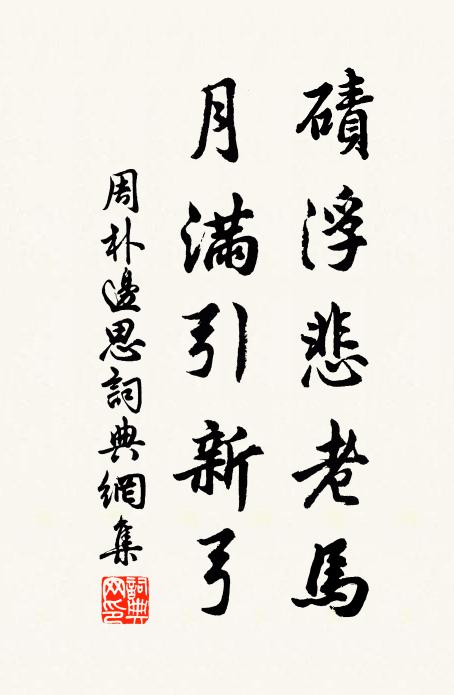 磧浮悲老馬
月滿引新弓
周朴邊思詞典網集
詞典網印